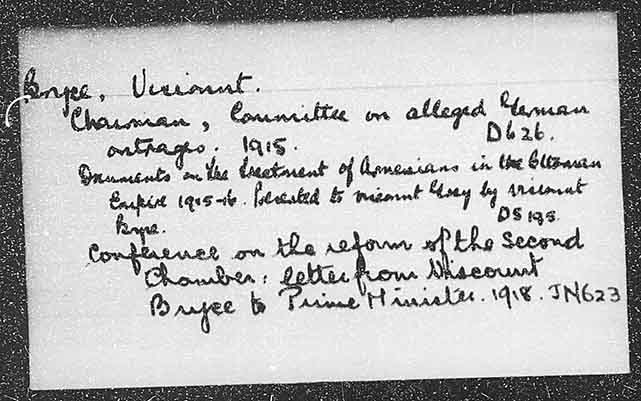 Bryce, Viscount.
Chairman, Committee on alleged German
outrages. 1915. D626.
Documents on the treatment of Armenians in the Ottoman
Empire 1915-16. Presented to Viscount Grey by Viscount
Bryce. DS195.
Conference on the reform of the Second
Chamber: letter from Viscount
Bryce to Prime Minister. 1918. JN623